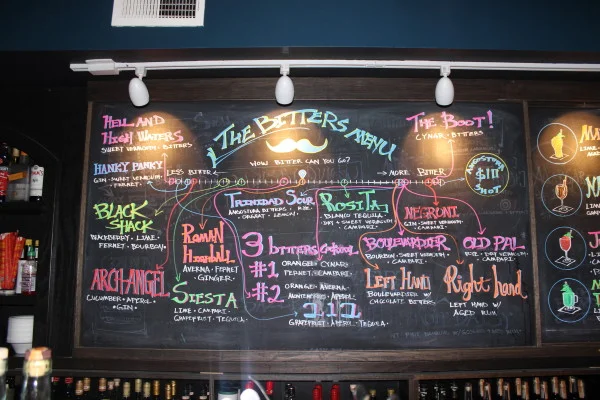 The Bitters Menu
How bitter can you go?
Less bitter
more bitter
Hell and
High Waters
Sweet Vermouth · Bitters
Hanky Panky
Gin · Sweet Vermouth ·
Fernet ·
Black
Shack
Blackberry · Lime ·
Fernet · Bourbon
Archangel
Cucumber · Aperol
· Gin ·
Ramon
Highball
Averna · Fernet
· Ginger ·
Siesta
Lime · Campari ·
Grapefruit · Tequila ·
Trinidad Sour
Angostura Bitters · Rye ·
Orgeat · Lemon ·
3 bitters
#1
Orange · Cynar ·
Fernet · Campari
#2
Orange · Averna ·
212
Grapefruit · Aperol · Tequila ·
Rosita
Blanco Tequila
Dry + Sweet Vermouth ·
Campari ·
The Boot!
Cynar · Bitters
Angostura
$1
Shot
Negroni
Gin · Sweet Vermouth ·
Campari ·
Boulevardier
Bourbon · Sweet Vermouth ·
Campari ·
Old Pal
Rye · Dry Vermouth ·
Campari
Left Hand
Boulevardier w/
Chocolate Bitters
Right hand
Left Hand w/
Aged Rum